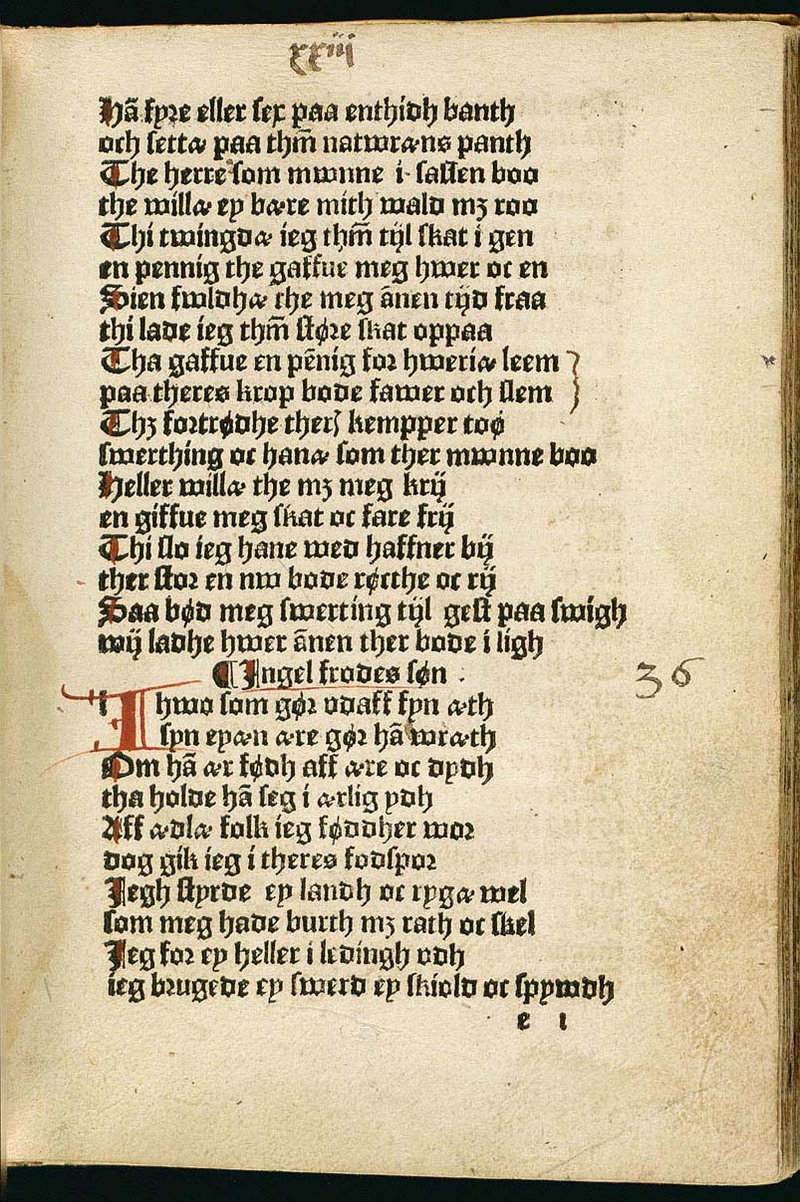 xxiij
Hã fyre eller sex paa enthidh banth
och settæ paa thm̃ natwræns panth
The herre som mwnne i sassen boo
the willæ ey bære mith wald mꝫ roo
Thi twingdæ ieg thm̃ tijl skat i gen
en pennig the gaffue meg hwer oc en
Sien fwldhæ the meg ãnen tijd fraa
thi lade ieg thm̃ støre skat oppaa
Tha gaffue en pẽnig for hweriæ leem
paa theres krop bode fawer och slem
Thꝫ fortrødhe therſ kempper toø
swerthing oc hanæ som ther mwnne boo
Heller willæ the mꝫ meg krij
en giffue meg skat oc fare frij
Thi slo ieg hane wed haffner bij
ther stor en nw bode røcthe oc rij
Saa bød meg swerting tijl gest paa swigh
wij ladhe hwer ãnen ther bode i ligh
¶Ingel frodes søn .
36
I hwo som gør vdaff syn æth
syn eyæn ære gør hã wræth
Om hã ær fødh aff ære oc dydh
tha holde hã seg i ærlig ydh
Aff ædlæ folk ieg føddher wor
dog gik ieg i theres fodspor
Jegh styrde ey landh oc rygæ wel
som meg hade burth mꝫ rath oc skel
Jeg for ey heller i ledingh vdh
ieg brugede ey swerd ey skiold oc spywdh
e i